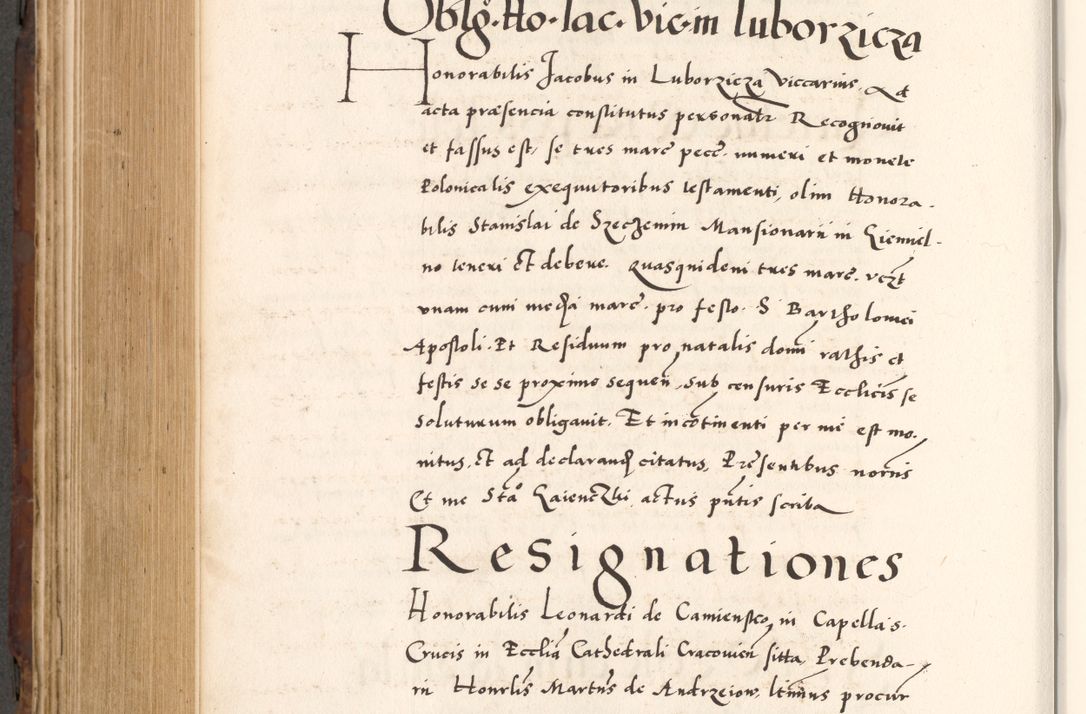 Oblg. tto. Iac. Vic. in Luborzicza
Honorabilis Jacobus in Luborzicza Viccarius Ad
acta præsencia constitutus personalr Recognouit
et fassus est, se tres marc pece. numeri et monete
Polonicalis exequutoribus testamenti, olim Honora-
bilis Stanislai de Szeczemin Mansionarii in Kiemiel-
no teneri et debere. Quasquideni tres marc. vczt
vnam cum media marc. pro festo. S Bartholomei
Apostoli. Et Residuum pro natalis domi rathis et
festis se se proximo sequen, sub censuris Ecclicis se
soluturum obligauit. Et incotinenti per me est mo-
nitus, et ad declarand citatus, Presentibus norns
Et me Sta Gaienczki actus pntis scriba
Resignationes
Honorabilis Leonardi de Camiensko, in Capella s.
Crucis in Ecclia Cathedrali Cracouien sitta, Prebenda-
rii Honrlis Martns de Andrzeiow, ltimus procur